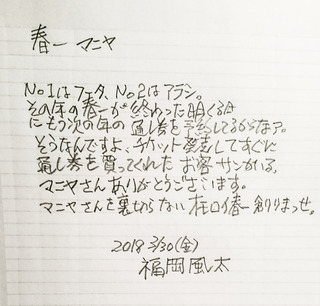 春一 マニヤ
No1はフェタ、No2はアラシ。
その年の春一が終わった明くる日
にもう次の年の通し券を予約してるからなァ。
そうなんですよ、チケット発売してすぐに
通し券を買ってくれたお客サンがいる。
マニヤさんありがとうございます。
マニヤさんを裏切らない 春一 創りまっせ。
2018 3/30(金)
福岡風太